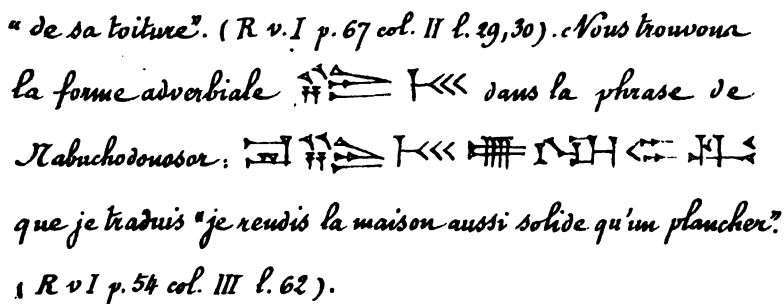 “ de sa toiture”. ( R v. I p. 67 col. II l. 29, 30 ). Nous trouvons
la forme adverbiale dans la phrase de
Nabuchodonosor :
que je traduis “je rendis la maison aussi solide qu'un plancher”.
( R v I p. 54 col. III l. 62 ).